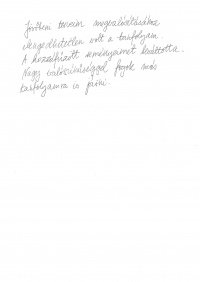 Jövőbeni terveim megvalósításához
elengedhetetlen volt a tanfolyam.
A hozzáfűzött reményeimet beváltotta.
Nagy valószínűséggel fogok más
tanfolyamra is járni.